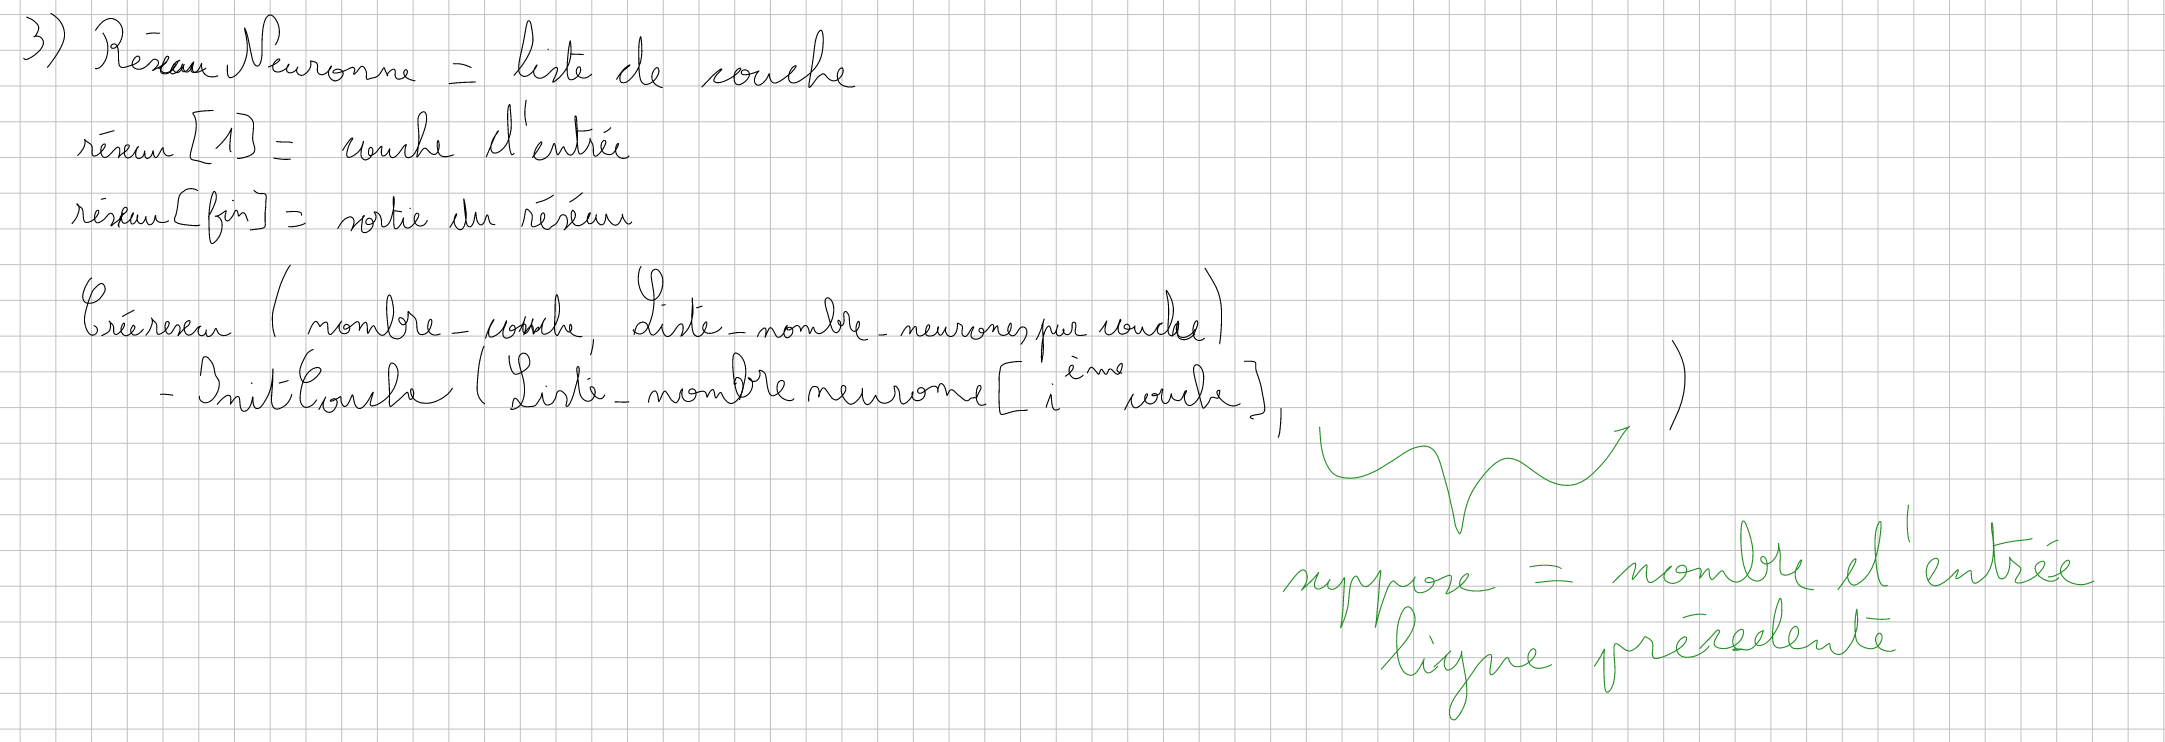 3) Réseau Neuronne = liste de couche
réseau [1] = couche d'entrée
réseau [fin] = sortie du réséau
Créereseau (nombre_couche, Liste_nombre_neurones par couche)
- InitCouche (Liste_nombre neurone [i ème couche], )
suppose = nombre d'entrée
ligne précedente